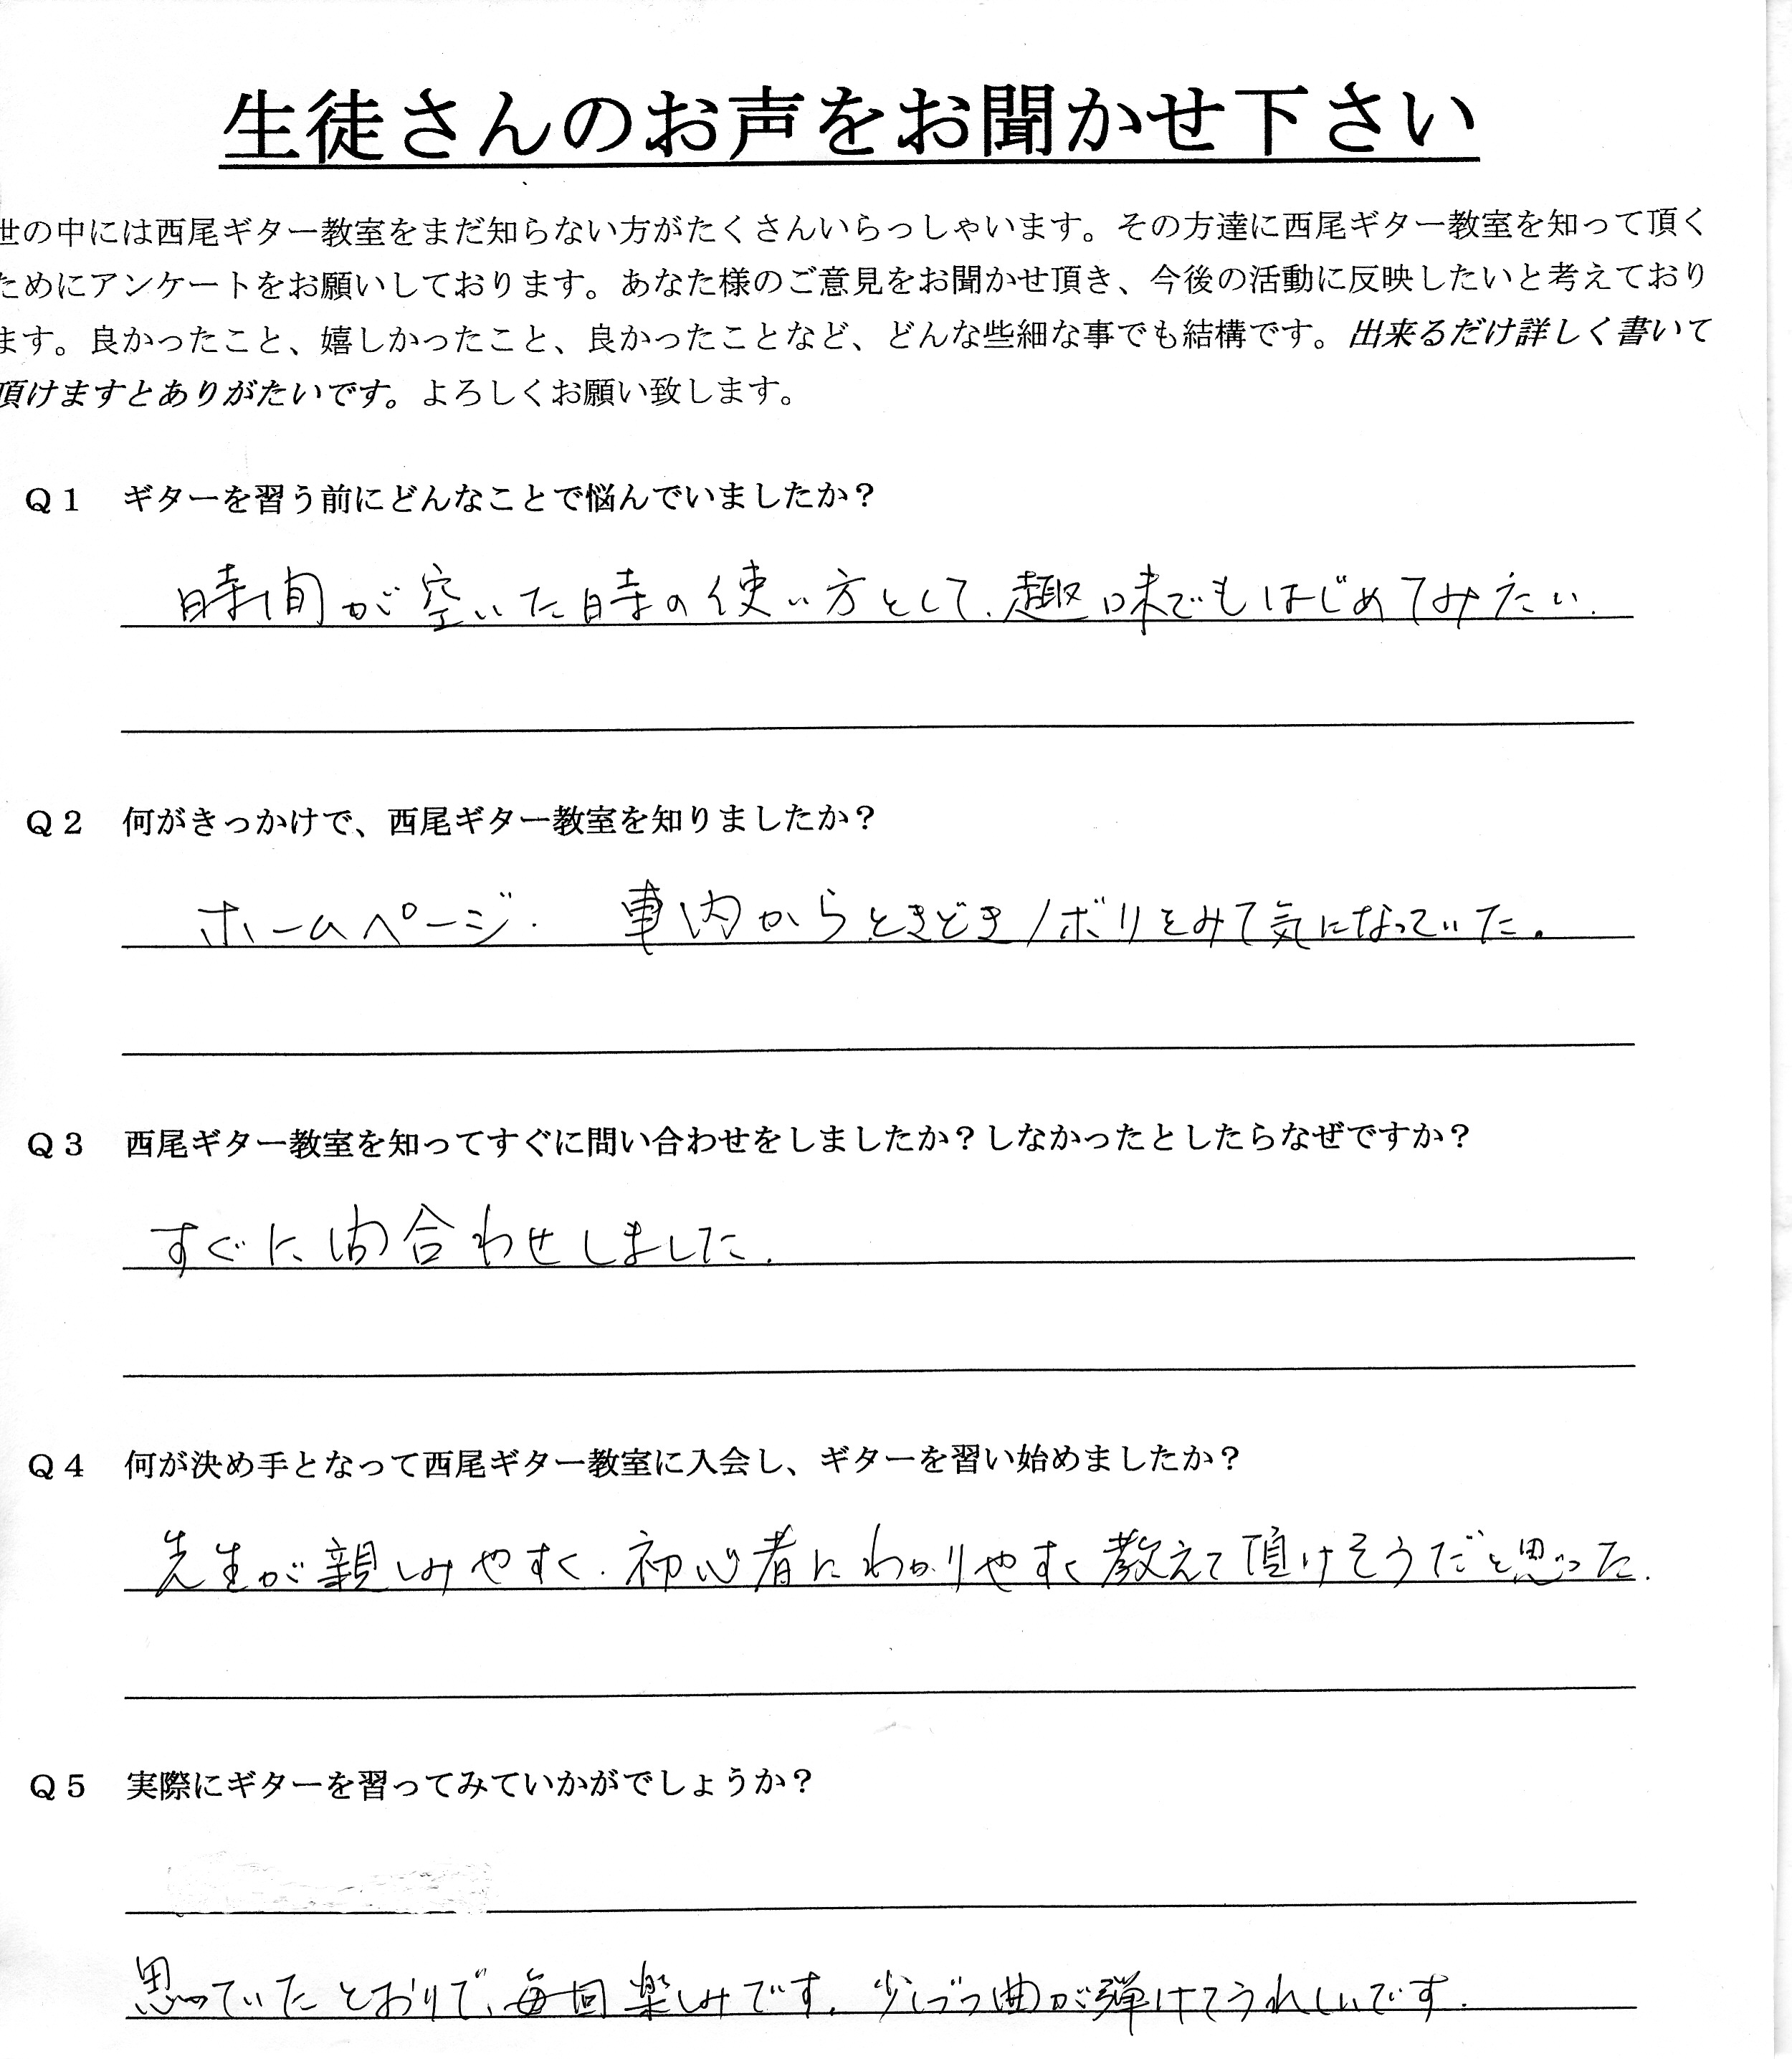 生徒さんのお声をお聞かせ下さい
世の中には西尾ギター教室をまだ知らない方がたくさんいらっしゃいます。その方達に西尾ギター教室を知って頂く
ためにアンケートをお願いしております。あなた様のご意見をお聞かせ頂き、今後の活動に反映したいと考えており
ます。良かったこと、嬉しかったこと、良かったことなど、どんな些細な事でも結構です。出来るだけ詳しく書いて
頂けますとありがたいです。よろしくお願い致します。
Q1 ギターを習う前にどんなことで悩んでいましたか？
時間が空いた時の使い方として、趣味でもはじめてみたい.
Q2 何がきっかけで、西尾ギター教室を知りましたか？
ホームページ. 車内からときどきノボリをみて気になっていた。
Q3 西尾ギター教室を知ってすぐに問い合わせをしましたか？しなかったとしたらなぜですか？
すぐに問合わせしました.
Q4 何が決め手となって西尾ギター教室に入会し、ギターを習い始めましたか？
先生が親しみやすく. 初心者にわかりやすく教えて頂けそうだと思った.
Q5 実際にギターを習ってみていかがでしょうか？
思っていたとおりで、毎回楽しみです. 少しづつ曲が弾けてうれしいです.